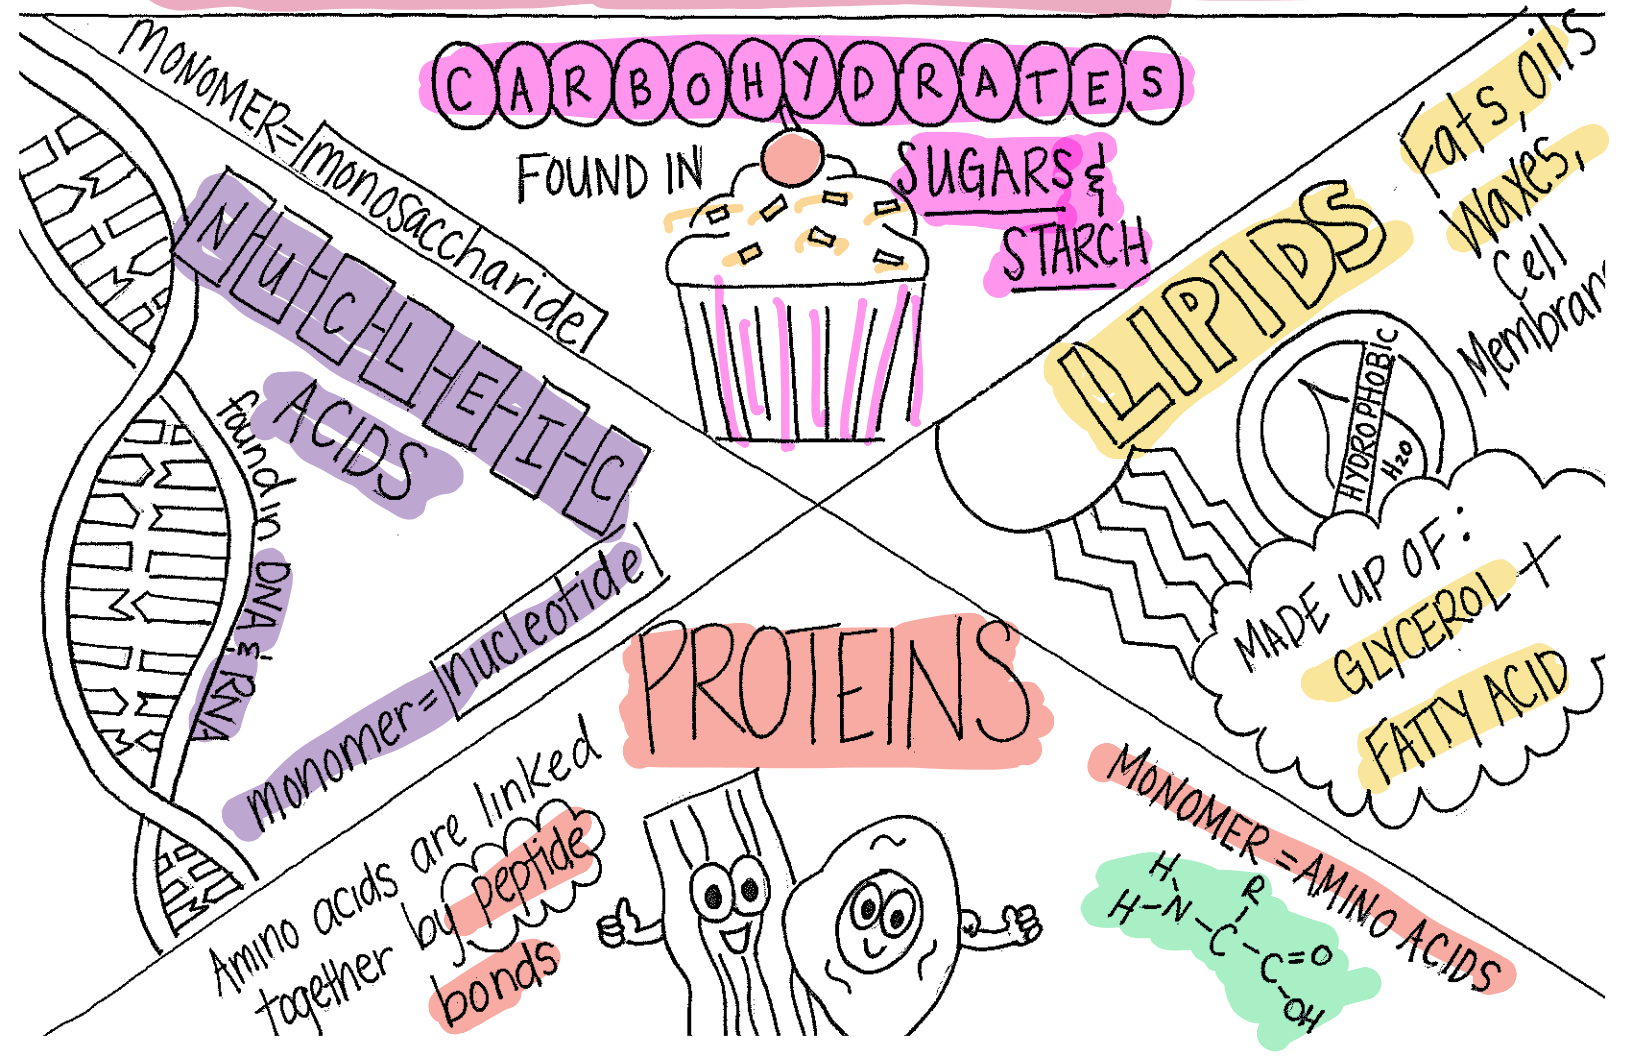 CARBOHYDRATES
FOUND IN
SUGARS &
STARCH
MONOMER = monosaccharide
NUCLEIC
ACIDS
found in DNA & RNA
monomer = nucleotide
LIPIDS
Fats, oils
Waxes,
Cell
Membran
HYDROPHOBIC
H2O
MADE UP OF:
GLYCEROL +
FATTY ACID
PROTEINS
Amino acids are linked
together by peptide
bonds
MONOMER = AMINO ACIDS
H R
H-N-C-C=O
OH